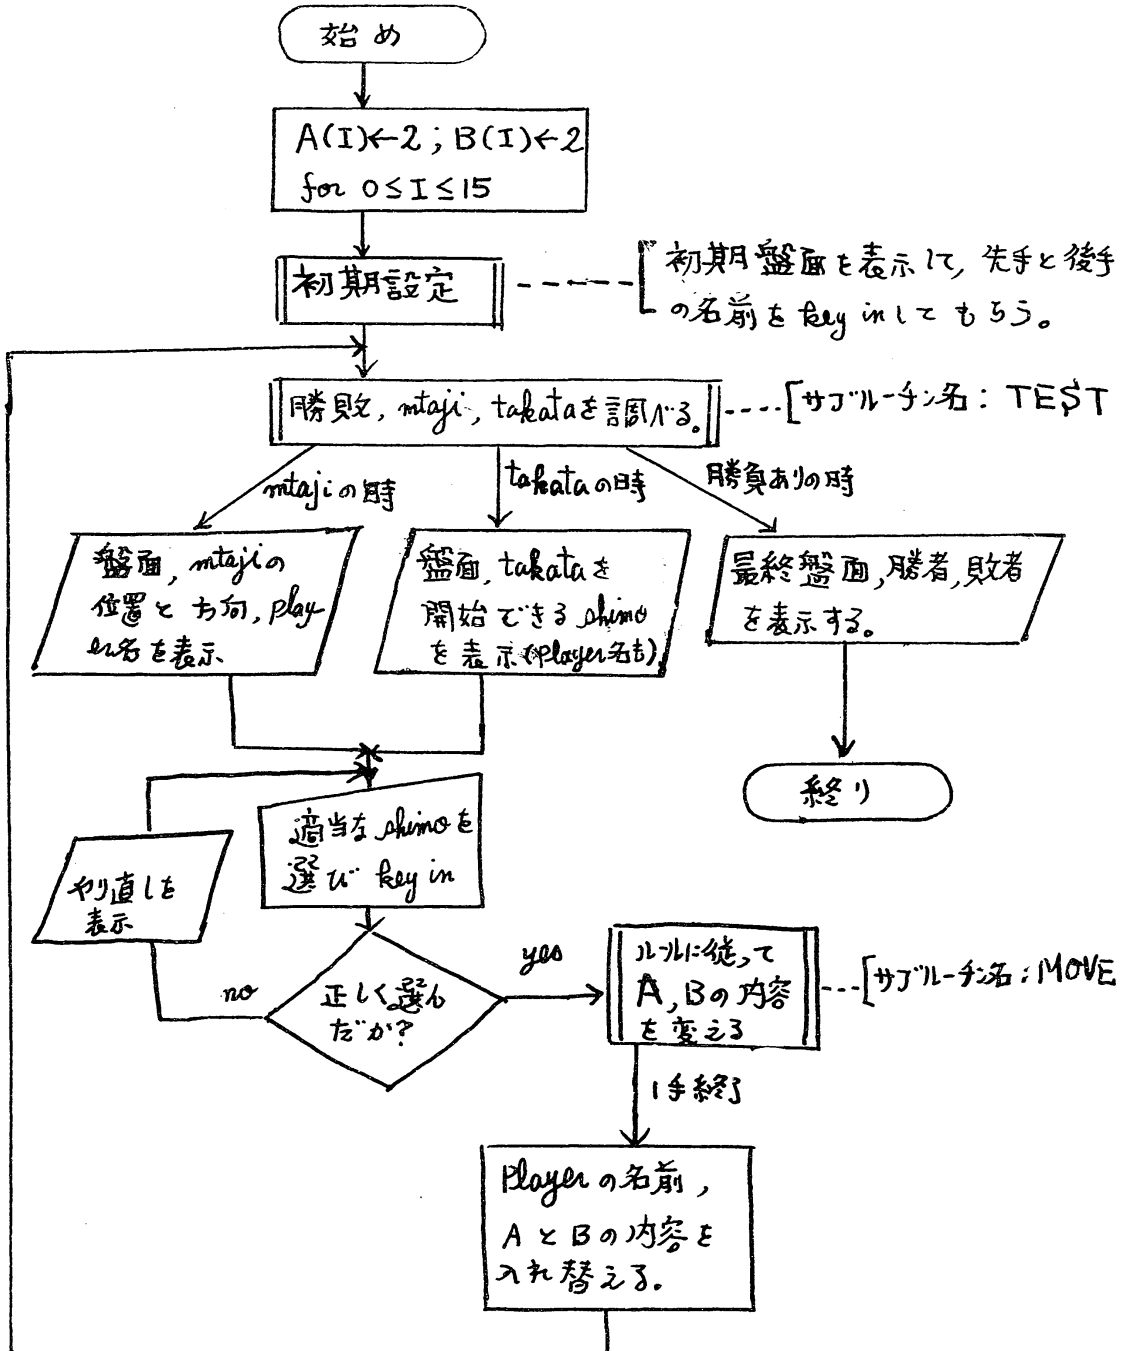 始め
A(I)←2 ; B(I)←2
for 0≤I≤15
初期設定
初期盤面を表示して, 先手と後手
の名前をkey inしてもらう。
勝敗, mtaji, takataを調べる。
サブルーチン名: TEST
mtajiの時
takataの時
勝負ありの時
盤面, mtajiの
位置と方向, play
er名を表示
盤面, takataを
開始できるshimo
を表示(player名も).
最終盤面, 勝者, 敗者
を表示する。
終り
適当なshimoを
選び key in
やり直しを
表示
正しく選ん
だか?
no
yes
ルールに従って
A, Bの内容
を変える
サブルーチン名: MOVE
1手終了
Playerの名前,
AとBの内容を
入れ替える。